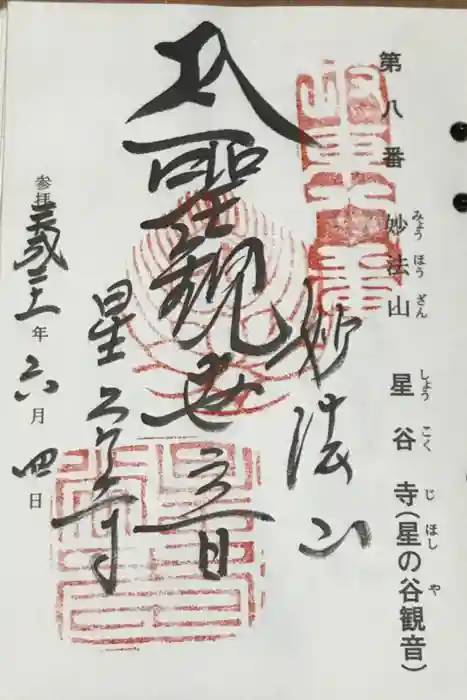 第八番 妙法山 星谷寺(星の谷観音)
みょう ほう ざん しょう こく じ ほし や
妙法山
聖観世音
星谷寺
参拝 年六月四日